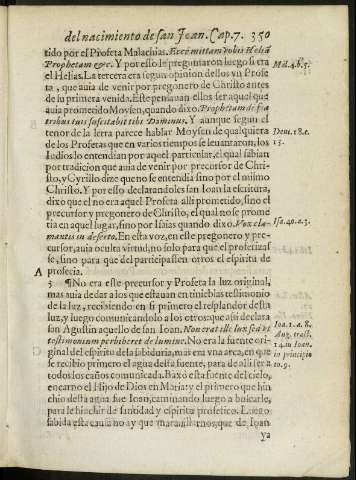 del nacimiento de san Joan. Cap. 7. 350
tido por el Profeta Malachias. Ecce mittam vobis Heliā
Prophetam &c. Y por esso le preguntaron luego si era
el Helias. La tercera era segun opinion dellos vn Profe
ta, que auia de venir por pregonero de Christo antes
de su primera venida. Este pensauan ellos ser aquel que
auia prometido Moysen, quando dixo. Prophetam de fra
tribus tuis suscitabit tibi Dominus. Y aunque segun el
tenor de la letra parece hablar Moysen de qualquiera
de los Profetas que en varios tiempos se leuantaron, los
Iudios lo entendian por aquel particular, el qual sabian
por tradicion que auia de venir por precursor de Chri
sto, y Cyrillo dize que no se entendia sino por el mismo
Christo. Y por esso declarandoles san Ioan la escritura,
dixo que el no era aquel Profeta alli prometido, sino el
precursor y pregonero de Christo, el qual no se prome
tia en aquel lugar, sino por Isaias quando dixo. Vox cla-
mantis in deserto. En esta voz, en este pregonero y pre-
cursor, auia oculta virtud, no solo para que el profetizas
se, sino para que del participassen otros el espiritu de
A profecia.
3 ¶ No era este precursor y Profeta la luz original,
mas auia de dar a los que estauan en tinieblas testimonio
de la luz, recibiendo en si primero el resplandor desta
luz, y luego comunicandolo a los otros: que assi declara
san Agustin aquello de san Ioan. Non erat ille lux sed vt
testimonium perhiberet de lumine. No era la fuente ori-
ginal del espiritu de la sabiduria, mas era vna arca, en que
se recibio primero el agua desta fuente, para de alli ser a
todos los caños comunicada. Baxò esta fuente del cielo,
encarno el Hijo de Dios en Maria: y el primero que hin
chio desta agua fue Ioan, caminando luego a buscarle,
para le hinchir de santidad y espiritu profetico. Luego
sabida esta causa no ay que marauillarnos, que de Ioan
ya
Mal. 4. b. 5.
Deut. 18. c.
15.
Isa. 40. a. 3.
Ioa. 1. a. 8.
Aug. tract.
14. in Ioan.
in principio
to. 9.